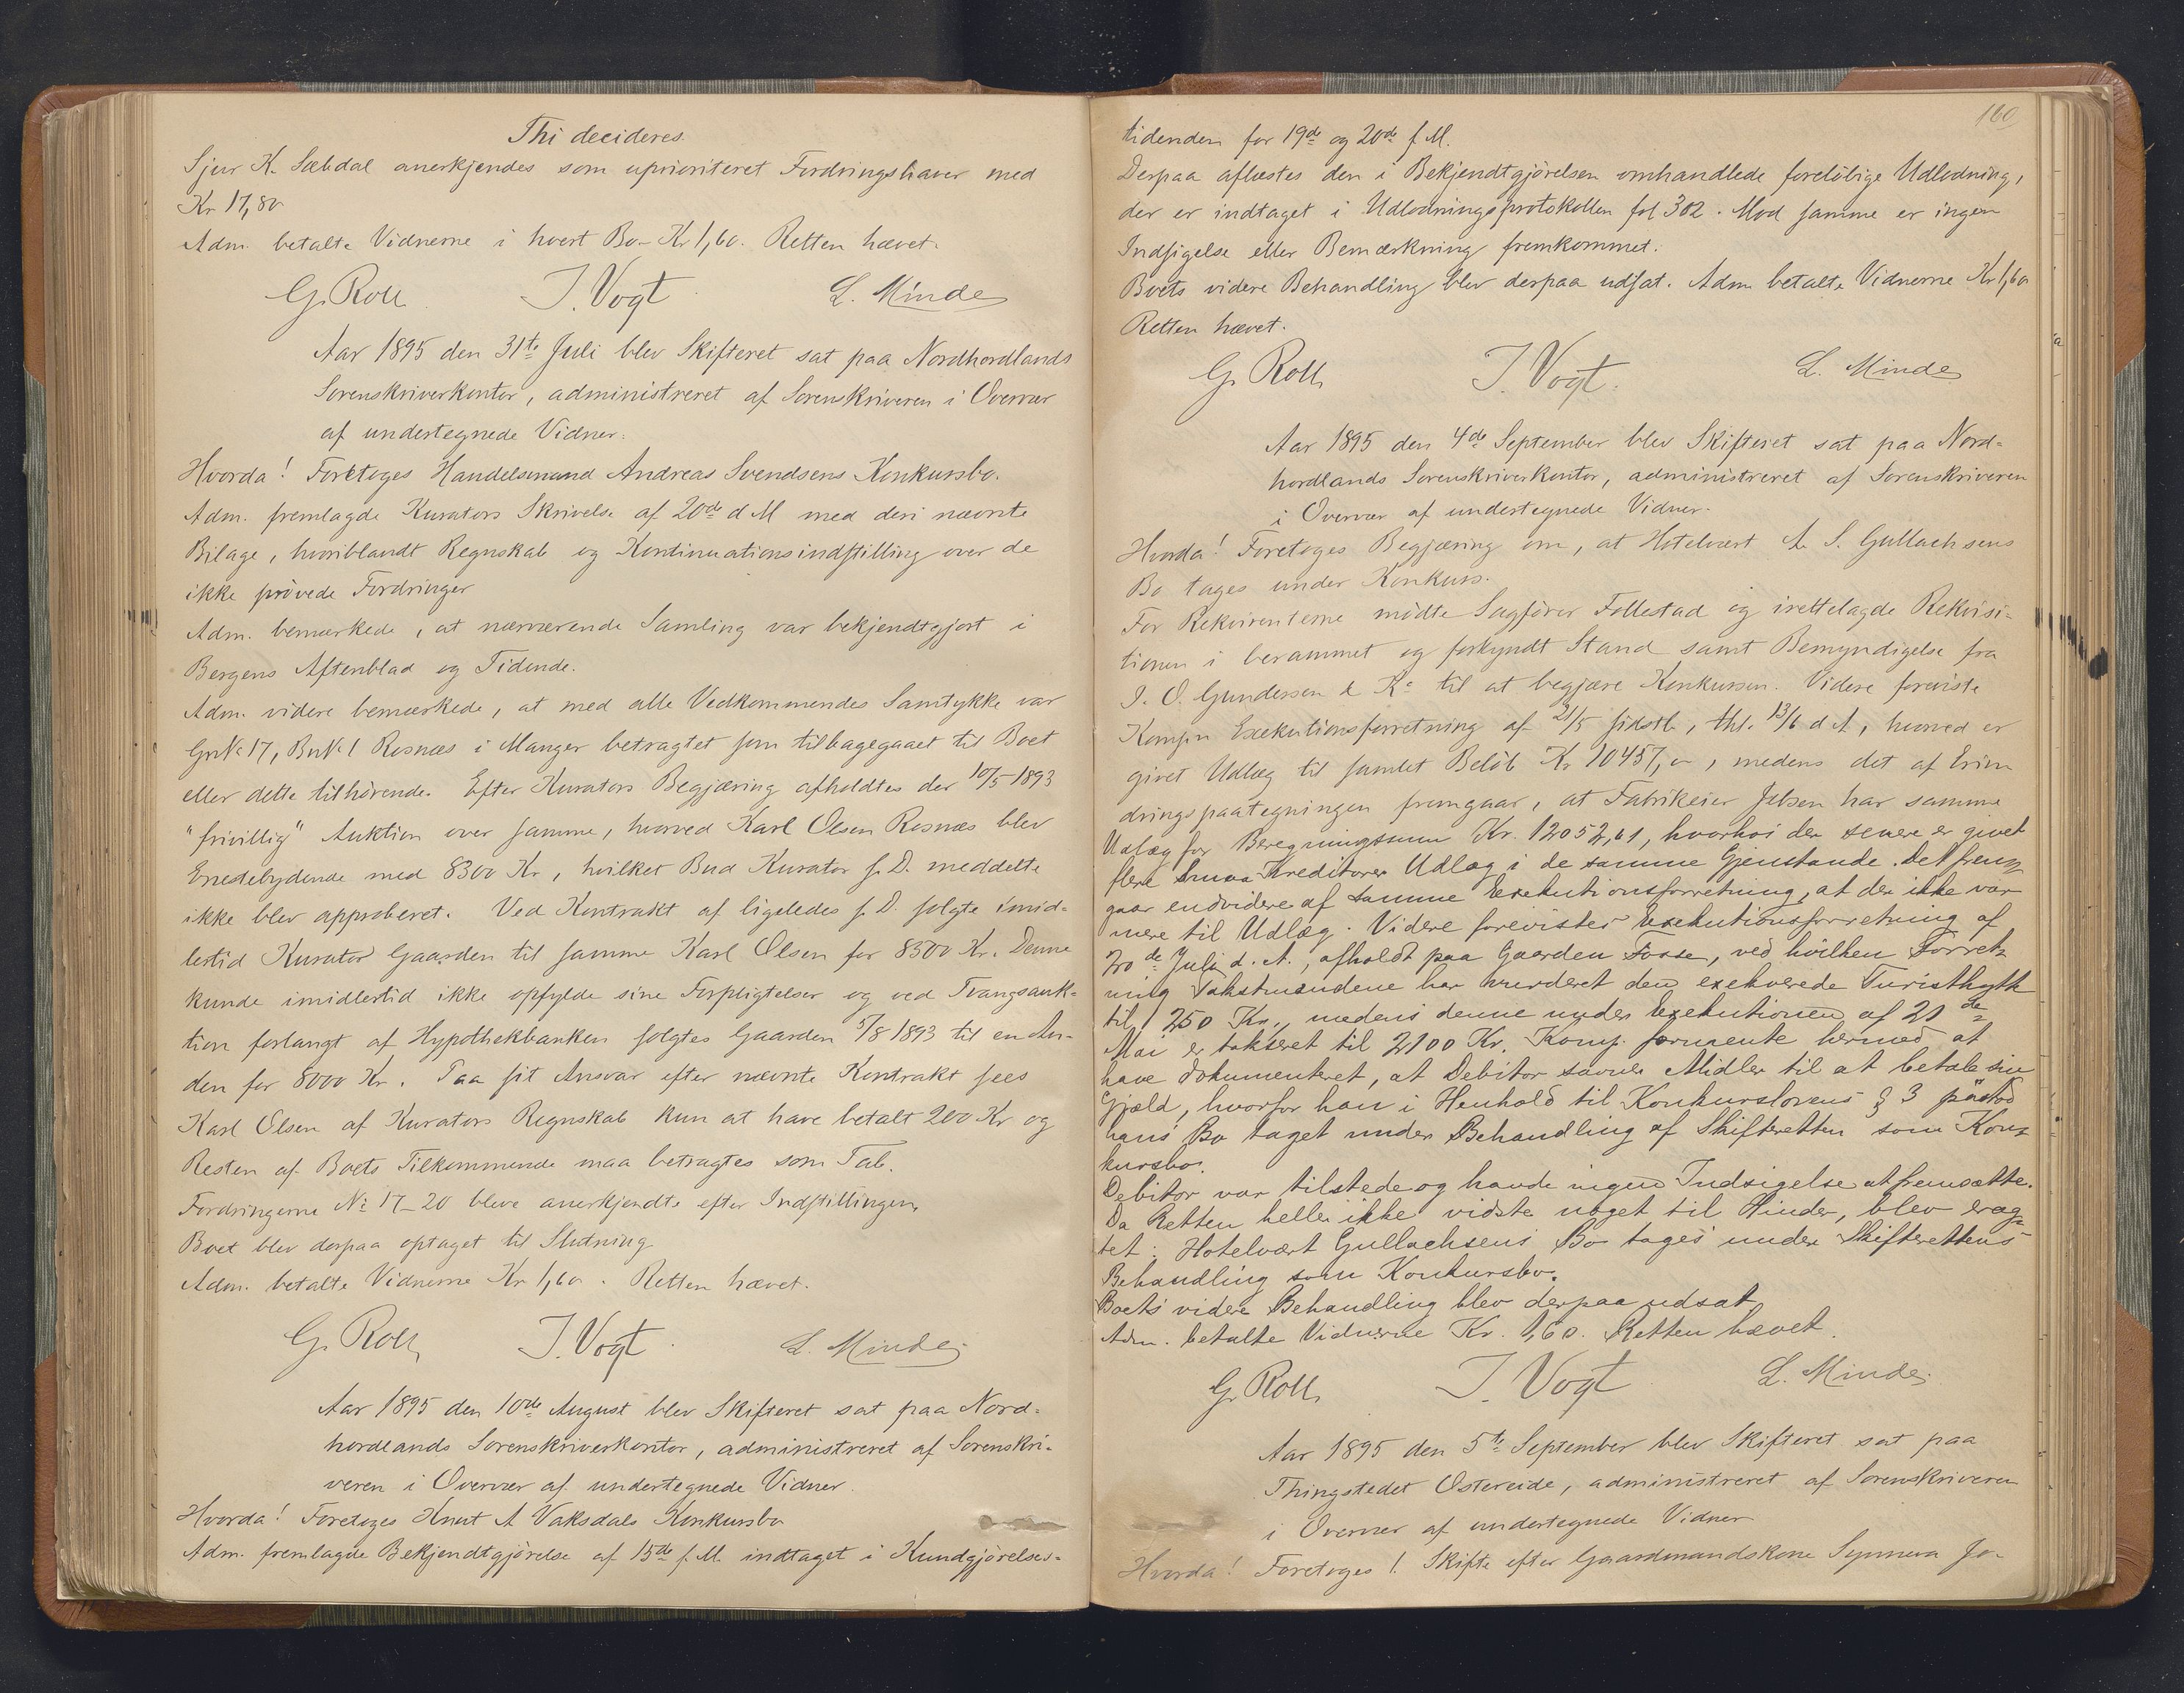 Thi decideres.
Sjur K. Sæbdal anerkjendes som uprioriteret Fordringshaver med
Kr 17,80
Adm. betalte Vidnerne i hvert Bo - Kr 1,60. Retten hævet.
G. Roll J. Vogt L. Minde
Aar 1895 den 31te Juli blev Skifteret sat paa Nordhordlands
Sorenskriverkontor, administreret af Sorenskriveren i Overvær
af undertegnede Vidner.
Hvorda! Foretoges Handelsmand Andreas Svendsens Konkursbo.
Adm. fremlagde Kurators Skrivelse af 20de d M med deri nævnte
Bilage, hvoriblandt Regnskab og Kontinuationsindstilling over de
ikke prövede Fordringer
Adm. bemærkede, at nærværende Samling var bekjendtgjort i
Bergens Aftenblad og Tidende.
Adm. videre bemærkede, at med alle Vedkommendes Samtykke var
GrN. 17, BrN. 1 Rosnæs i Manger betragtet som tilbagegaaet til Boet
eller dette tilhörende. Efter Kurators Begjæring afholdtes der 10/5 1893
"frivillig" Auktion over samme, hvorved Karl Olsen Rosnæs blev
Enestebydende med 8300 Kr, hvilket Bud Kurator s. D. meddelte
ikke blev approberet. Ved Kontrakt af ligeledes s. D. solgte imid-
lertid Kurator Gaarden til samme Karl Olsen for 8500 Kr. Denne
kunde imidlertid ikke opfylde sine Forpligtelser og ved Tvangsauk-
tion forlangt af Hypothekbanken solgtes Gaarden 5/8 1893 til en An-
den for 8000 Kr. Paa sit Ansvar efter nævnte Kontrakt sees
Karl Olsen af Kurators Regnskab kun at have betalt 200 Kr og
Resten af Boets Tilkommende maa betragtes som Tab.
Fordringerne No 17-20 bleve anerkjendte efter Indstillingen.
Boet blev derpaa optaget til Slutning
Adm. betalte Vidnerne Kr 1,60. Retten hævet.
G. Roll J. Vogt L. Minde
Aar 1895 den 10de August blev Skifteret sat paa Nord-
hordlands Sorenskriverkontor, administreret af Sorenskri-
veren i Overvær af undertegnede Vidner.
Hvorda! Foretoges Knut A Vaksdals Konkursbo
Adm. fremlagde Bekjendtgjörelse af 15de f. M. indtaget i Kundgjörelses-
160
tidenden for 19de og 20de f M.
Derpaa aflæstes den i Bekjendtgjörelsen omhandlede forelöbige Udlodning,
der er indtaget i Udlodningsprotokollen fol 302. Mod samme er ingen
Indsigelse eller Bemærkning fremkommet.
Boets videre Behandling blev derpaa udsat. Adm. betalte Vidnerne Kr 1,60
Retten hævet.
G. Roll J. Vogt. L. Minde
Aar 1895 den 4de September blev Skifteret sat paa Nord-
hordlands Sorenskriverkontor, administreret af Sorenskriveren
i Overvær af undertegnede Vidner.
Hvorda! Foretoges Begjæring om, at Hotelvært A. S. Gullachsens
Bo tages under Konkurs.
For Rekvirenterne mödte Sagförer Follestad og irettelagde Rekvisi-
tionen i berammet og forkyndt Stand samt Bemyndigelse fra
J. O. Gundersen & Ko til at begjære Konkursen. Videre foreviste
Komp. Exekutionsforretning af 21/5 sidstl, thl. 13/6 d A, hvorved er
givet Udlæg til samlet Belöb Kr 10457,00, medens det af Erin
dringspaategningen fremgaar, at Fabrikeier Jebsen har samme
Udlæg for Beregningssum Kr. 12052,61, hvorhos der senere er givet
flere Smaa Kreditorer Udlæg i de samme Gjenstande. Det frem-
gaar endvidere af samme Exekutionsforretning, at der ikke var
mere til Udlæg. Videre forevistes Exekutionsforretning af
20de Juli d. A., afholdt paa Gaarden Fosse, ved hvilken Forret-
ning Takstmændene har vurderet den exekverede Turisthytte
til 250 Kr, medens denne under Exekutionen af 21de
Mai er takseret til 2100 Kr. Komp. formente hermed at
have dokumenteret, at Debitor savner Midler til at betale sin
Gjæld, hvorfor han i Henhold til Konkurslovens § 3 paastod
hans Bo taget under Behandling af Skifteretten som Kon-
kursbo.
Debitor var tilstede og havde ingen Indsigelse at fremsætte.
Da Retten heller ikke vidste noget til Hinder, blev erag-
tet: Hotelvært Gullachsens Bo tages under Skifterettens
Behandling som Konkursbo.
Boets videre Behandling blev derpaa udsat.
Adm. betalte Vidnerne Kr. 1,60. Retten hævet.
G. Roll J. Vogt L. Minde
Aar 1895 den 5te September blev Skifteret sat paa
Thingstedet Ostereide, administreret af Sorenskriveren
i Overvær af undertegnede Vidner
Hvorda! Foretoges 1. Skifte efter Gaardmandskone Synneva Jo-